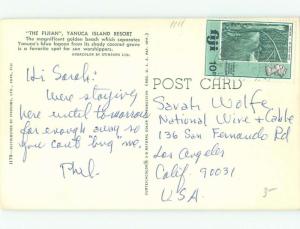 "THE FIJIAN", YANUCA ISLAND RESORT
The magnificent golden beach which separates
Yanuca's blue lagoon from its shady coconut grove
is a favorite spot for sun worshippers.
Hi Sarah:
Were staying
here until tomorrow
far enough away so
you can't "bug" me.
Phil
POST CARD
Sarah Wolfe
National Wire & Cable
136 San Fernando Rd
Los Angeles
Calif. 90031
U.S.A.
fiji
10c